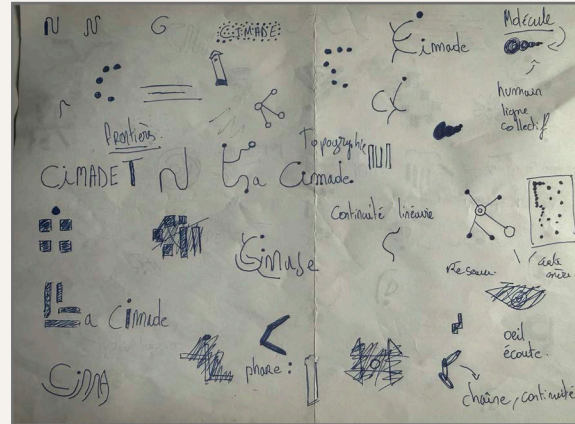 CIMADE
G
Cimade
Molécule
humain
ligne
collectif
Frontières
Topographie
CIMADE
La Cimade
Continuité linéaire
Réseau
La Cimade
phare :
oeil
écoute.
chaîne, continuité